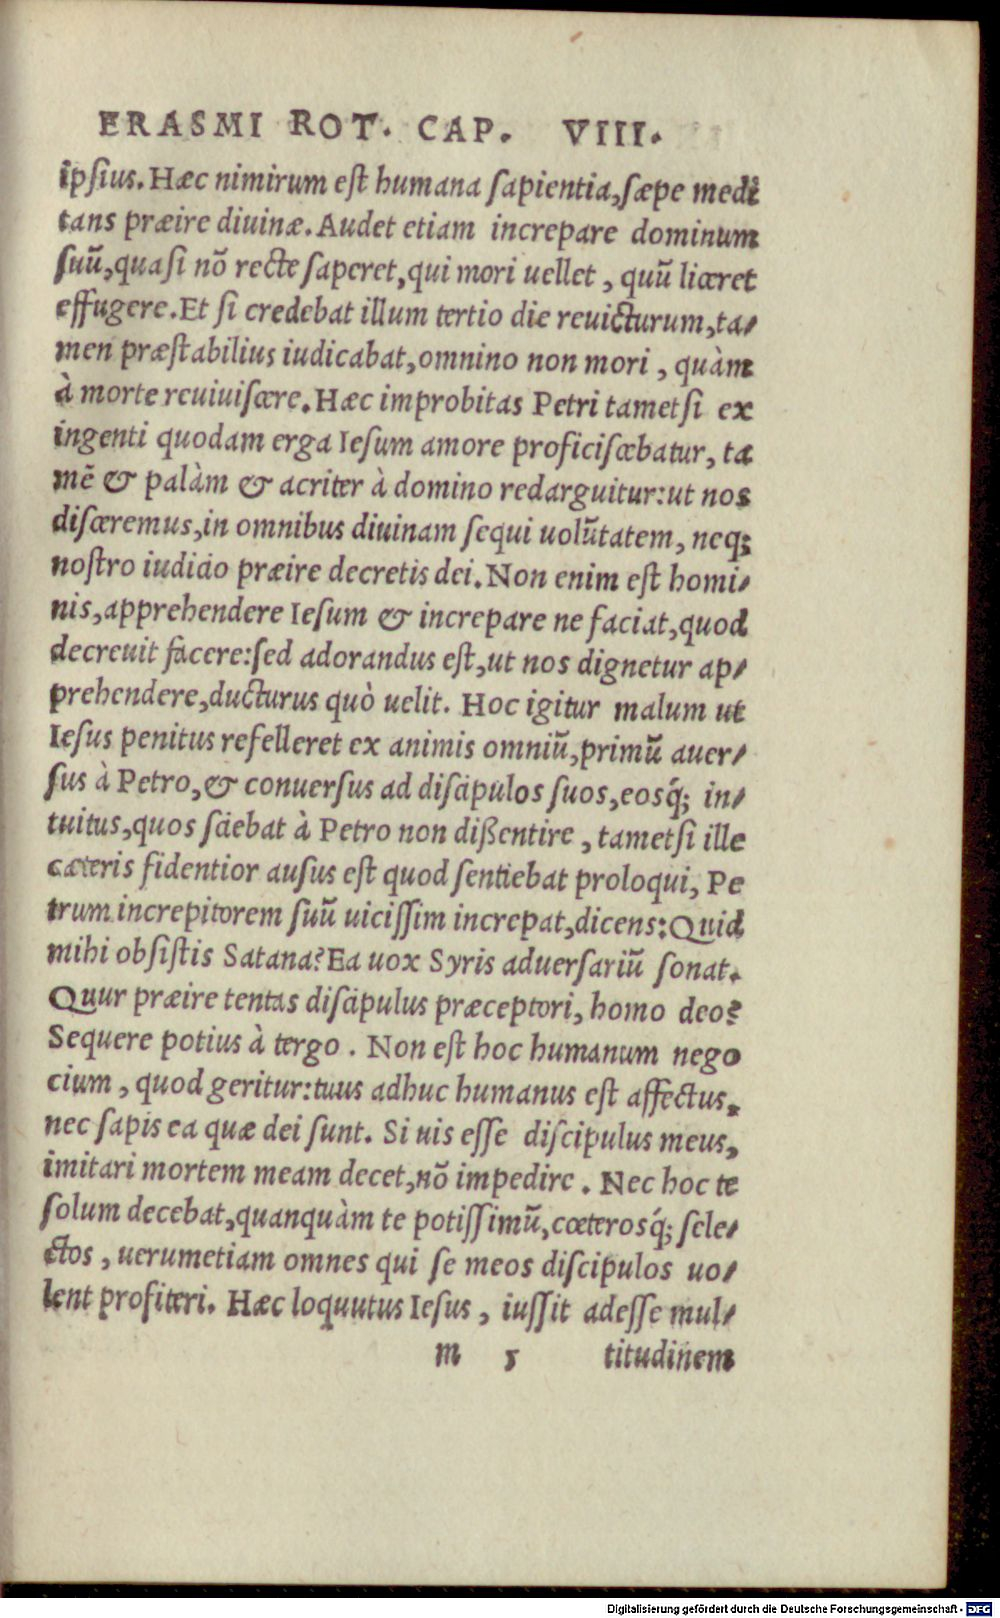 ERASMI ROT. CAP. VIII.
ipsius. Hæc nimirum est humana sapientia, sæpe medi
tans præire diuinæ. Audet etiam increpare dominum
suū, quasi nō recte saperet, qui mori uellet, quū liceret
effugere. Et si credebat illum tertio die reuicturum, ta-
men præstabilius iudicabat, omnino non mori, quàm
à morte reuiuiscere. Hæc improbitas Petri tametsi ex
ingenti quodam erga Iesum amore proficiscebatur, ta
mē & palàm & acriter à domino redarguitur: ut nos
disceremus, in omnibus diuinam sequi uolūtatem, neq;
nostro iudicio præire decretis dei. Non enim est homi-
nis, apprehendere Iesum & increpare ne faciat, quod
decreuit facere: sed adorandus est, ut nos dignetur ap-
prehendere, ducturus quò uelit. Hoc igitur malum ut
Iesus penitus refelleret ex animis omniū, primū auer-
sus à Petro, & conuersus ad discipulos suos, eosq́; in-
tuitus, quos sciebat à Petro non dißentire, tametsi ille
cæteris fidentior ausus est quod sentiebat proloqui, Pe
trum increpitorem suū uicissim increpat, dicens: Quid
mihi obsistis Satana? Ea uox Syris aduersariū sonat.
Quur præire tentas discipulus præceptori, homo deo?
Sequere potius à tergo. Non est hoc humanum nego
cium, quod geritur: tuus adhuc humanus est affectus,
nec sapis ea quæ dei sunt. Si uis esse discipulus meus,
imitari mortem meam decet, nō impedire. Nec hoc te
solum decebat, quanquàm te potissimū, cœterosq́; sele-
ctos, uerumetiam omnes qui se meos discipulos uo-
lent profiteri. Hæc loquutus Iesus, iussit adesse mul-
m 5 titudinem
Digitalisierung gefördert durch die Deutsche Forschungsgemeinschaft - DFG